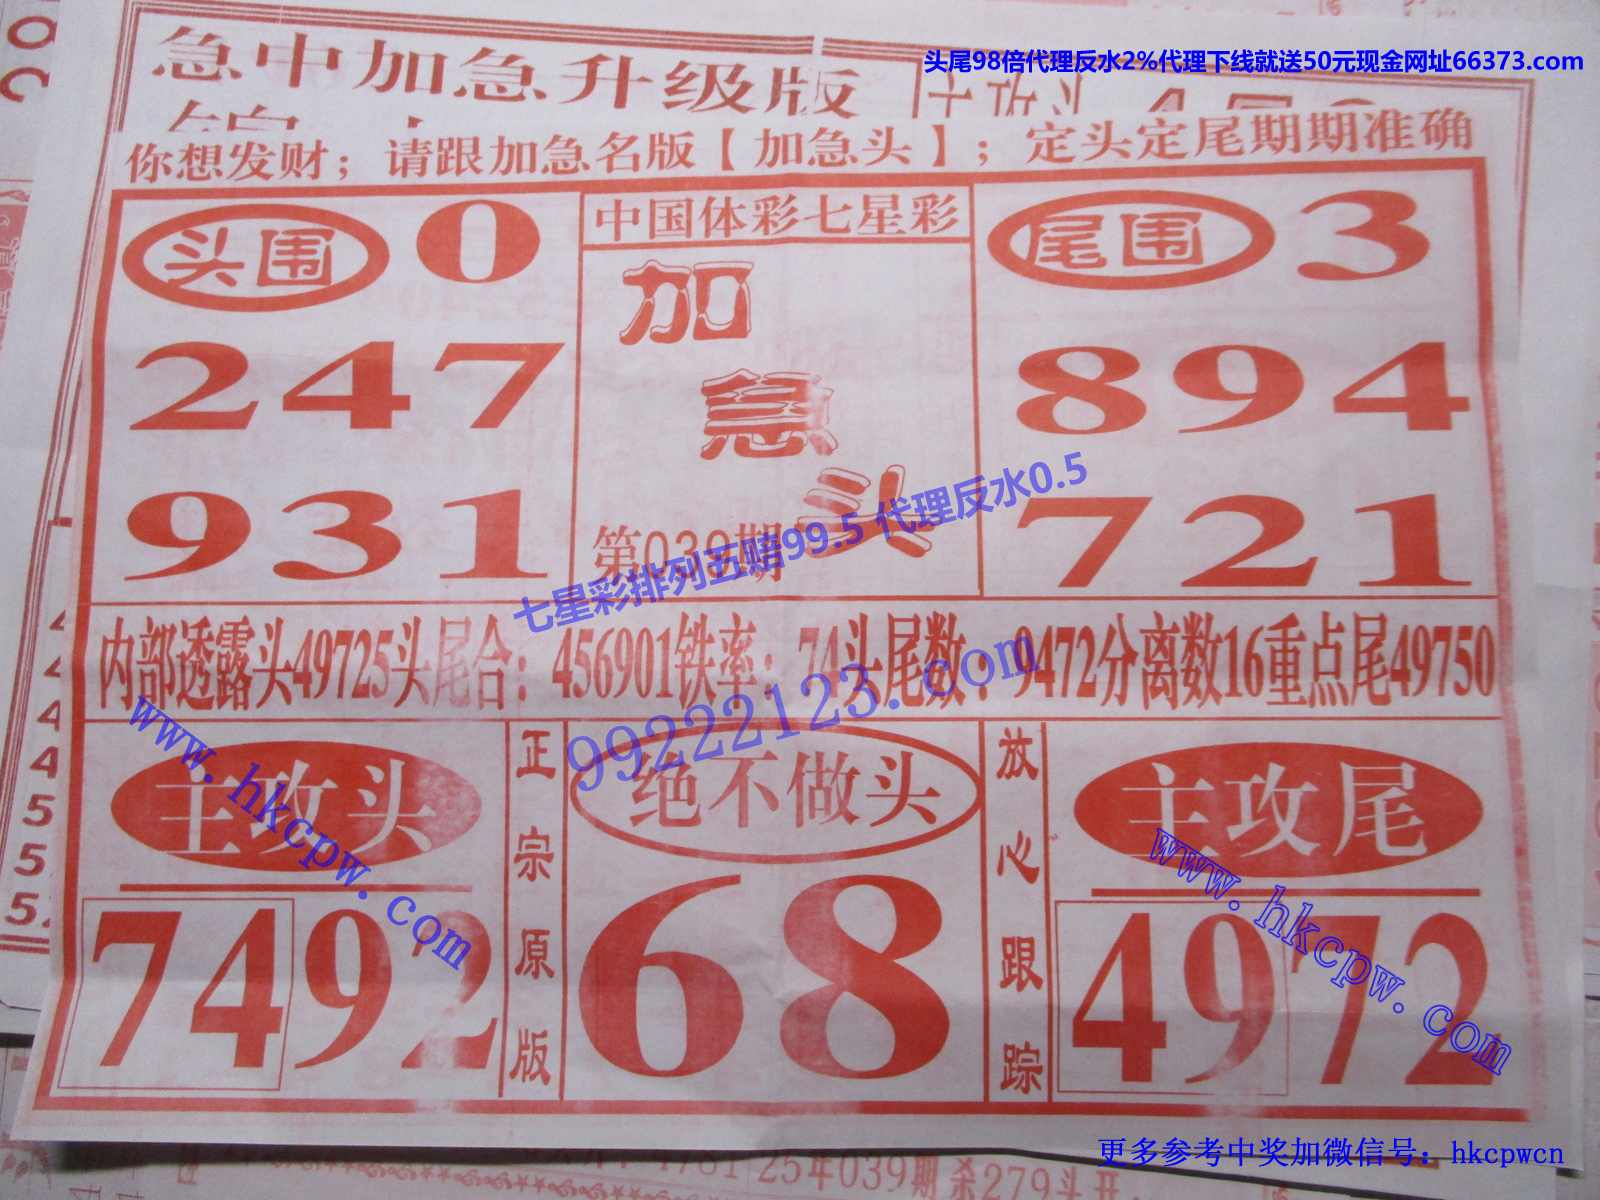 头尾98倍代理反水2%代理下线就送50元现金网址66373.com
急中加急升级版
你想发财；请跟加急名版【加急头】；定头定尾期期准确
头围 0
247
931
中国体彩七星彩
加急头
第039期
尾围 3
894
721
七星彩排列五赔99.5 代理反水0.5
内部透露头49725头尾合：456901铁率：74头尾数：9472分离数16重点尾49750
99222123.com
www.hkcpw.com
主攻头
7492
正宗原版
绝不做头
68
放心跟踪
主攻尾
4972
www.hkcpw.com
更多参考中奖加微信号：hkcpwcn
25年039期杀279头开